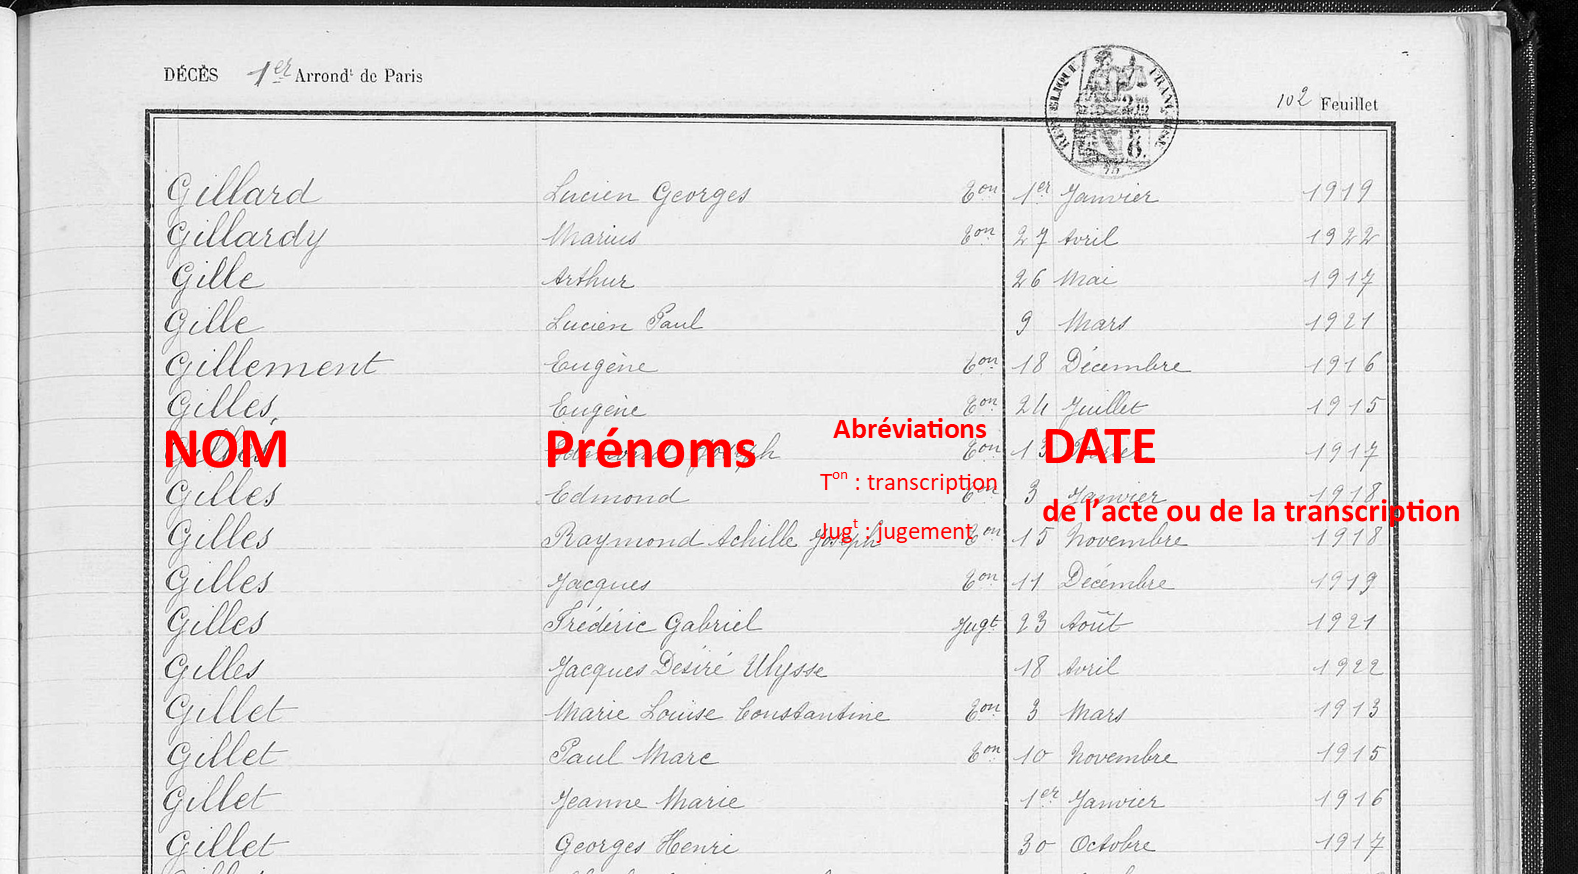 DÉCÈS 1er Arrondt de Paris
RÉPUBLIQUE FRANÇAISE
102 Feuillet
Gillard Lucien Georges Ton 1er Janvier 1919
Gillardy Marius Ton 27 Avril 1922
Gille Arthur 26 Mai 1917
Gille Lucien Paul 9 Mars 1921
Gillement Eugène Ton 18 Décembre 1916
Gilles Eugène Ton 24 Juillet 1915
Ton 13 1917
NOM Prénoms Abréviations DATE
Ton : transcription
Gilles Edmond Ton 3 Janvier 1918
de l’acte ou de la transcription
Jugt : jugement
Gilles Raymond Achille Joseph Ton 15 Novembre 1918
Gilles Jacques Ton 11 Décembre 1919
Gilles Frédéric Gabriel Jugt 23 Août 1921
Gilles Jacques Désiré Ulysse 18 Avril 1922
Gillet Marie Louise Constantine Ton 3 Mars 1913
Gillet Paul Marc Ton 10 Novembre 1915
Gillet Jeanne Marie 1er Janvier 1916
Gillet Georges Henri 30 Octobre 1917